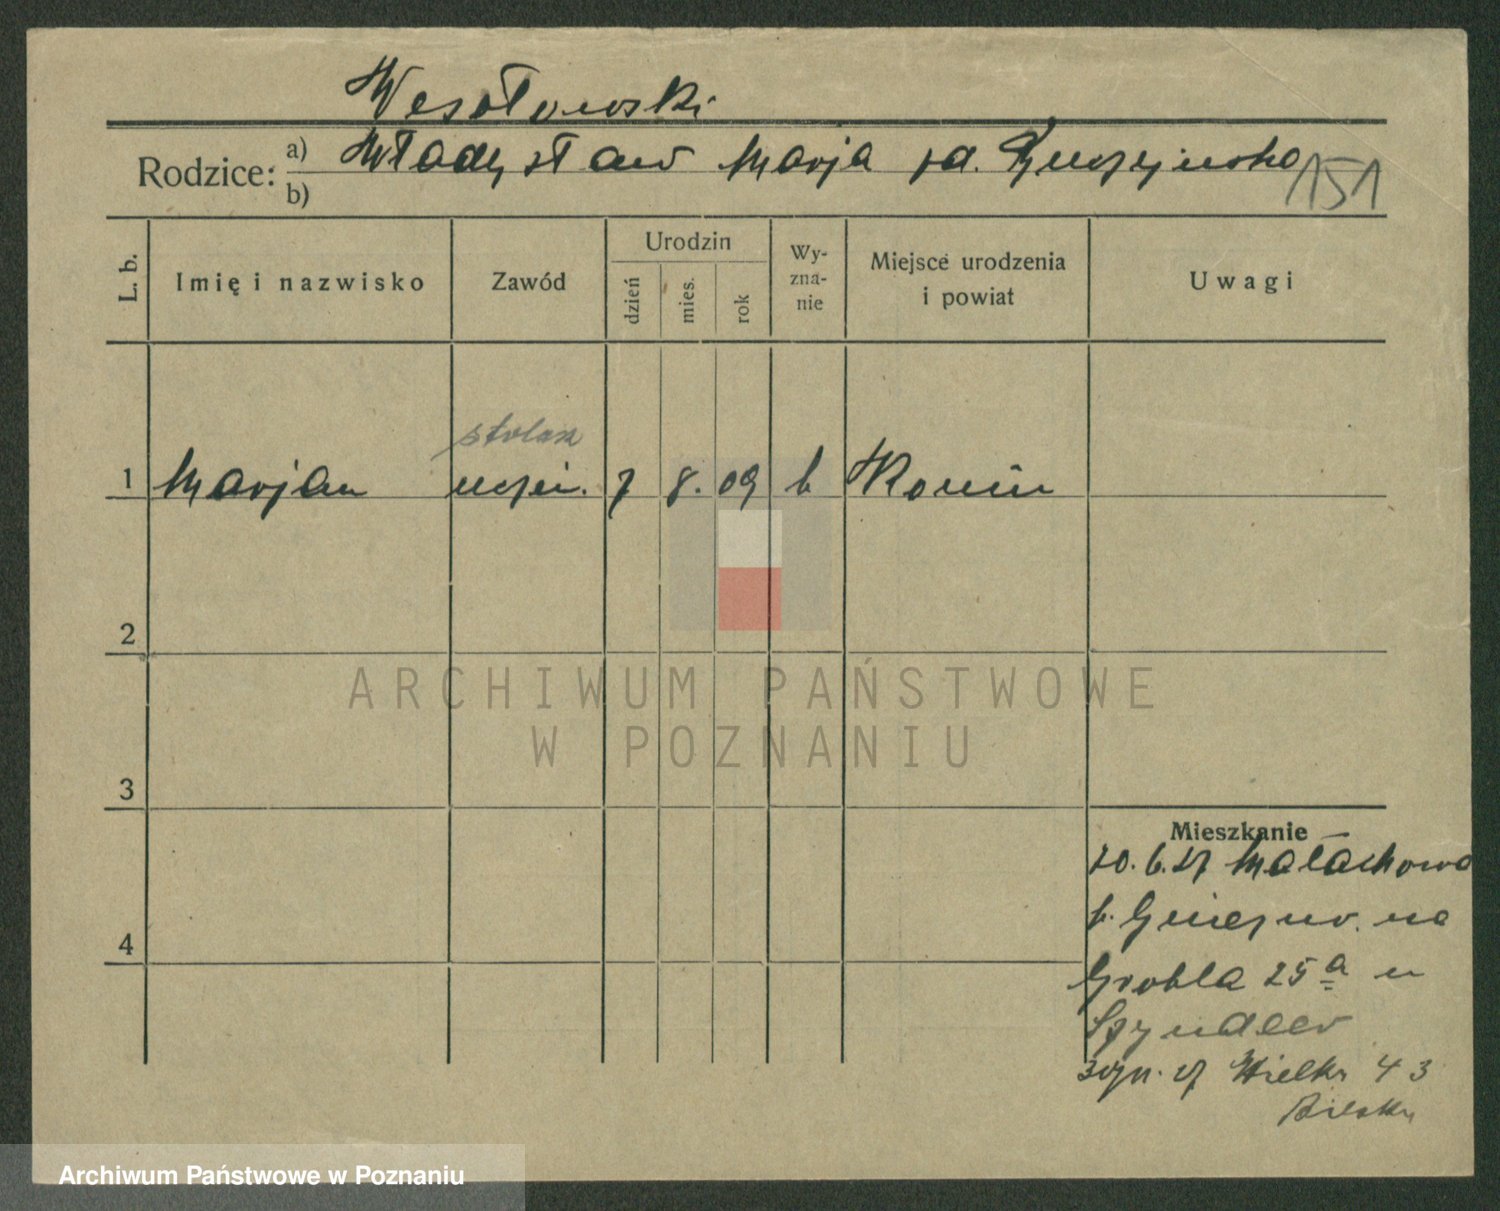 Wesołowski
Rodzice: a) Władysław Marja
b)
151
L. b.
Imię i nazwisko
Zawód
Urodzin
dzień
mies.
rok
Wy-
zna-
nie
Miejsce urodzenia
i powiat
Uwagi
stolarz
1 Marjan uczeń. 7 8. 09 k Konin
2
3
4
Mieszkanie
20.6.27 Małachowo
p. na
Grobla 25a u
Szyndler
27 Wielka 43
ARCHIWUM PAŃSTWOWE
W POZNANIU
Archiwum Państwowe w Poznaniu